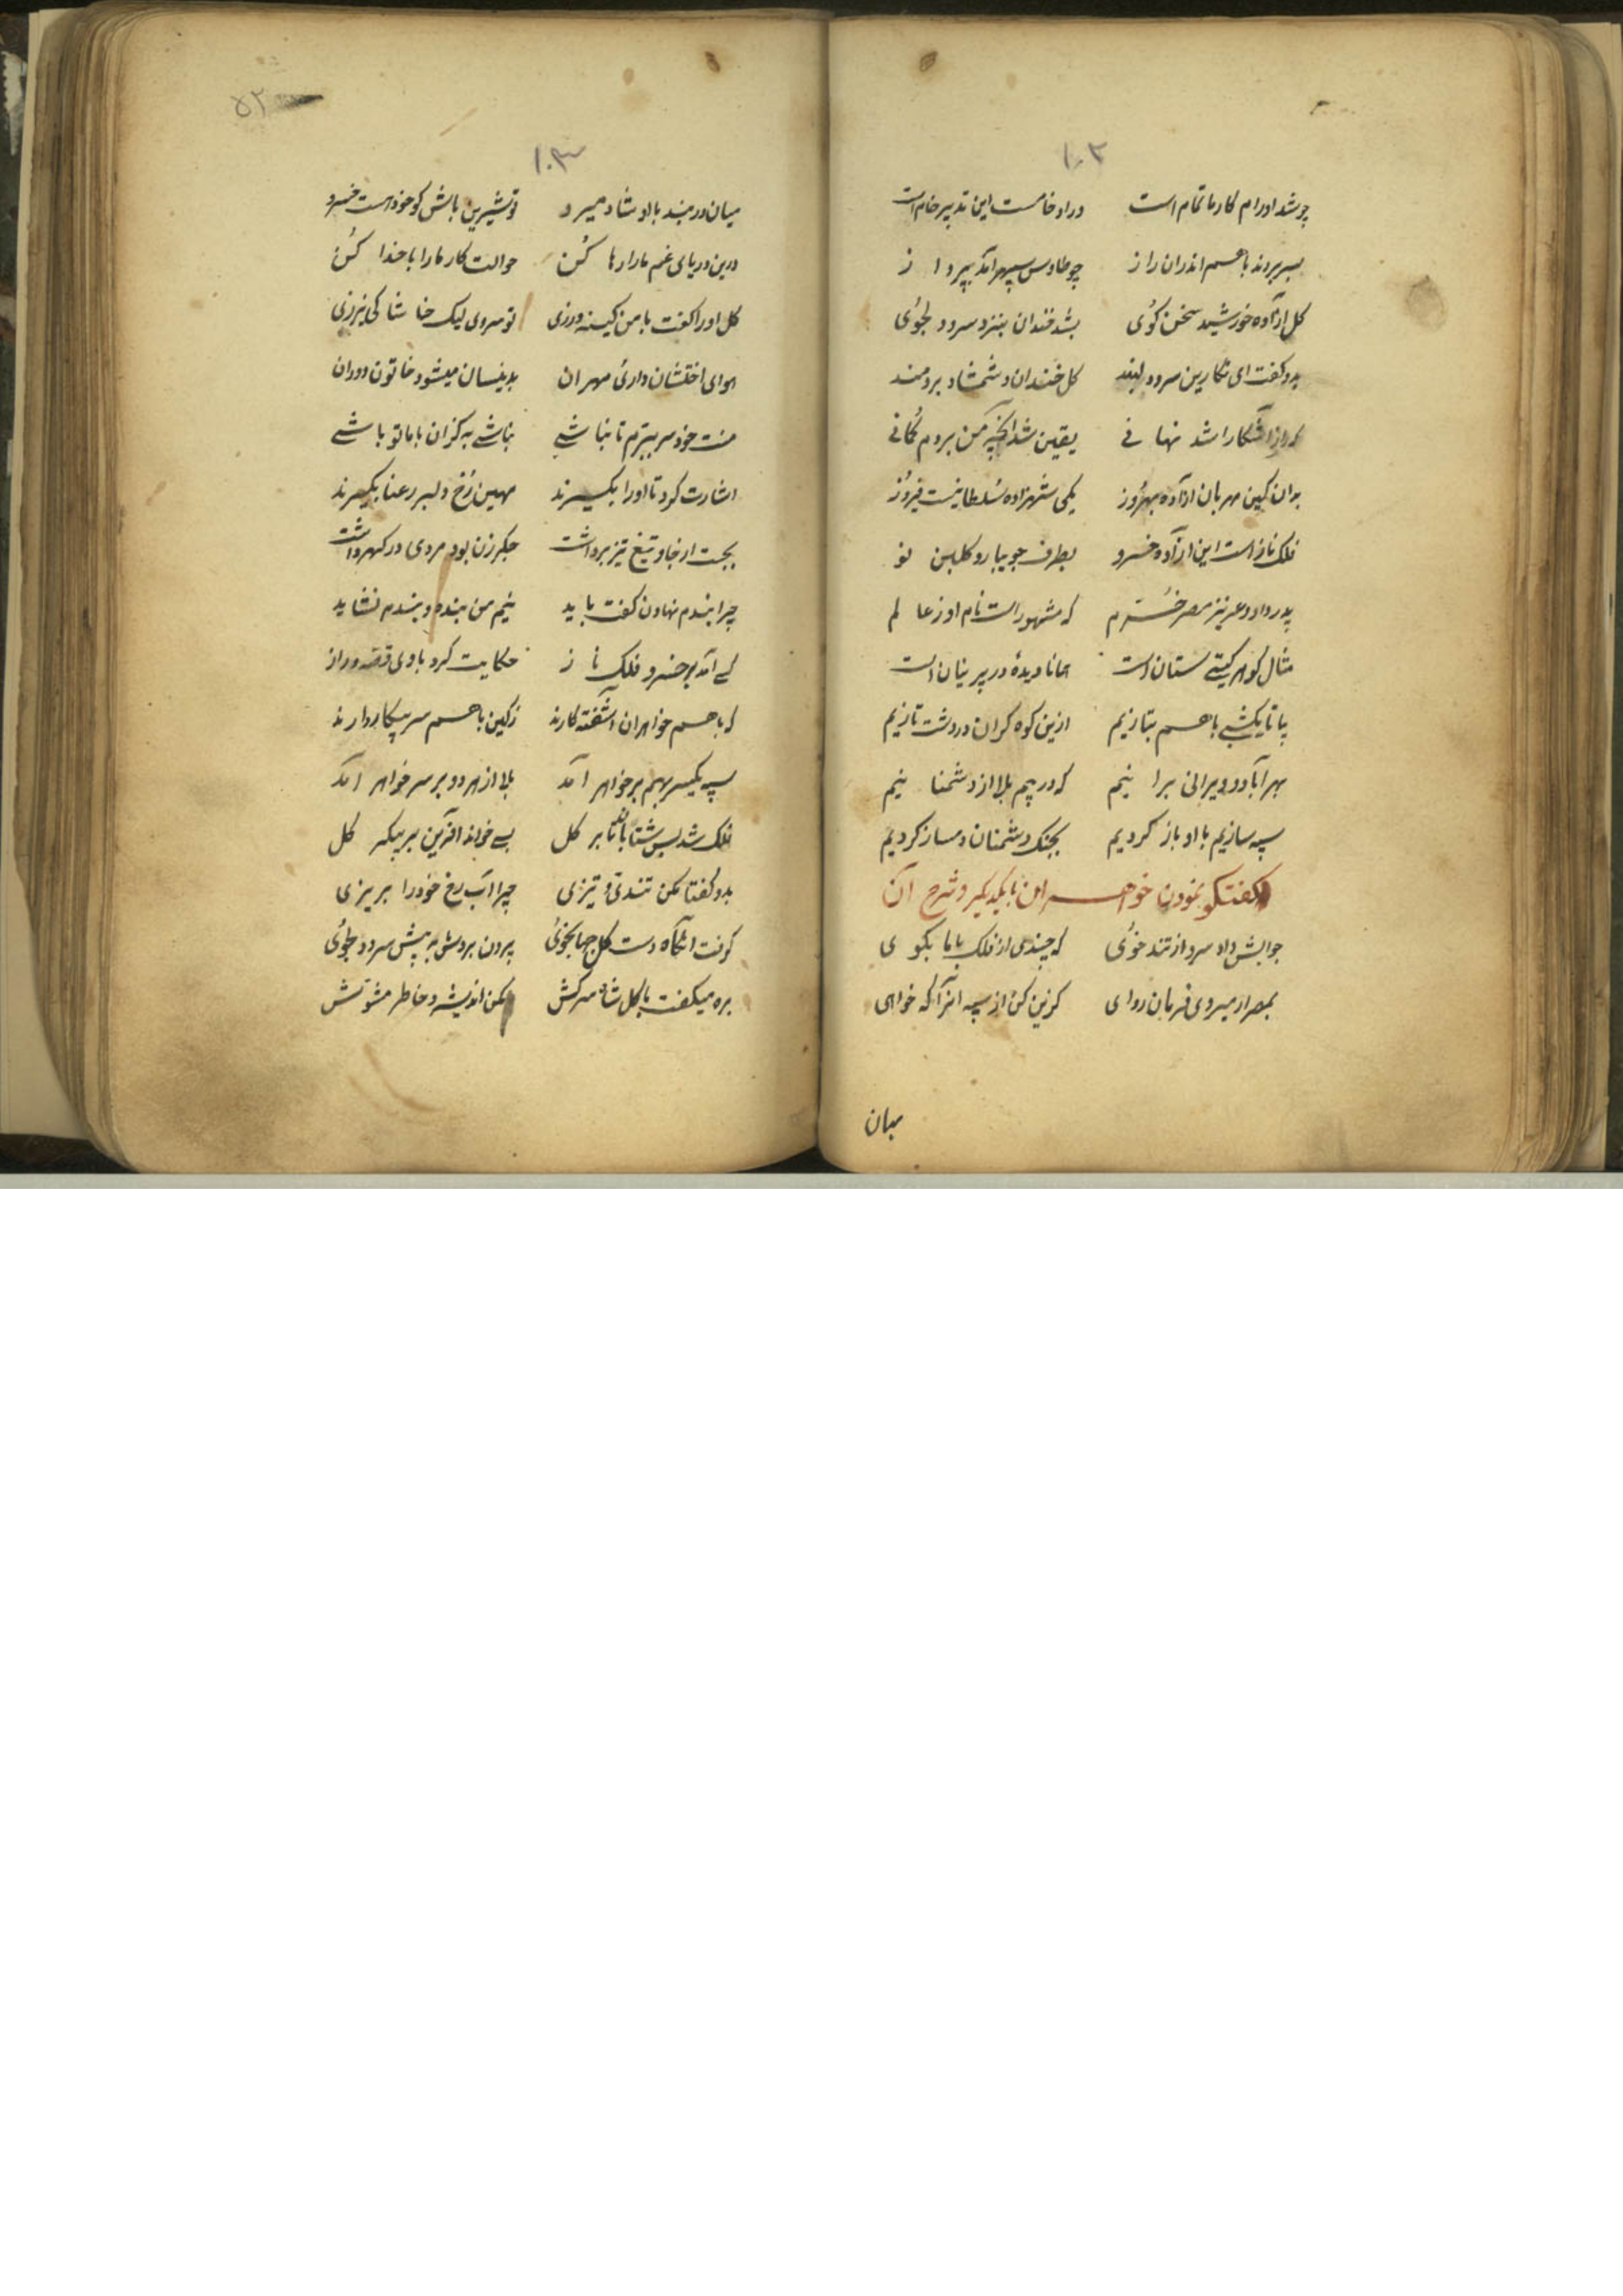 ۱۰۲
چو شد او رام کار ما تمام است ور او خامست این تدبیر خام است
بسر بردند با هم اندران راز چو طاوس سپهر آمد بپرواز
گل آزاده خورشید سخن گوی بشد خندان بنزد سرو دلجوی
بدو گفت ای نگارین سرو دلبند گل خندان و شمشاد برومند
که راز آشکارا شد نهانی یقین شد آنچه من بردم گمانی
بدان کین مهربان آزاده بهروز یکی شهزاده سلطانیست فیروز
فلک نازست این آزاده خسرو بطرف جویبارو گلبن نو
پدر دارد عزیز مصر خرم که مشهور است نام او ز عالم
مثال گوهر گیتی ستان است همانا دیدۀ در پرنیان است
بیا تا یکشبی با هم بتازیم ازین کوه گران در دشت تازیم
بهر آباد و ویرانی برانیم که در بیم بلا از دشمنانیم
سپه سازیم با او باز گردیم بجنگ دشمنان دمساز گردیم
گفتگو نمودن خواهران با یکدیگر و شرح آن
جوابش داد سرو از تند خوی که چندی از فلک با ما بگوی
بمصر ار میروی فرمان روای گزین کن از سپه انرا که خواهی
میان
۵۲
۱۰۳
میان دربند با او شاد میرو تو شیرین باش کو خود هست خسرو
درین دریای غم ما را رها کن حوالت کار ما را با خدا کن
گل او را گفت با من کینه ورزی تو سروی لیک خاشاکی نیرزی
هوای اختشان داری مهران بدینسان میشود خاتون دوران
منت خود سر ببرم تا نباشی نباشی به کزان با ما تو باشی
اشارت کرد تا او را بگیرند مهین رخ دلبر رعنا بگیرند
بجست از جا و تیغ تیز برداشت جگر زن بود مردی در گهر داشت
چرا بندم نهادن گفت باید نیم من بنده و بندم نشاید
کسی آمد بر خسرو فلک ناز حکایت کرد با وی قصه دراز
که با هم خواهران آشفته کارند ز کین با هم سر پیکار دارند
سپه یکسر بهم بر خواهر آمد بلا از هر دو بر سر خواهر آمد
فلک شد بس شتابان تا بر گل بسی خواند آفرین بر پیکر گل
بدو گفتا مکن تندی و تیزی چرا آب رخ خود را بریزی
گرفت آنگاه دست گل جهانجوی برون بردش به پیش سرو دلجوی
بره میگفت با گل شاه سرکش مکن اندیشه و خاطر مشوش